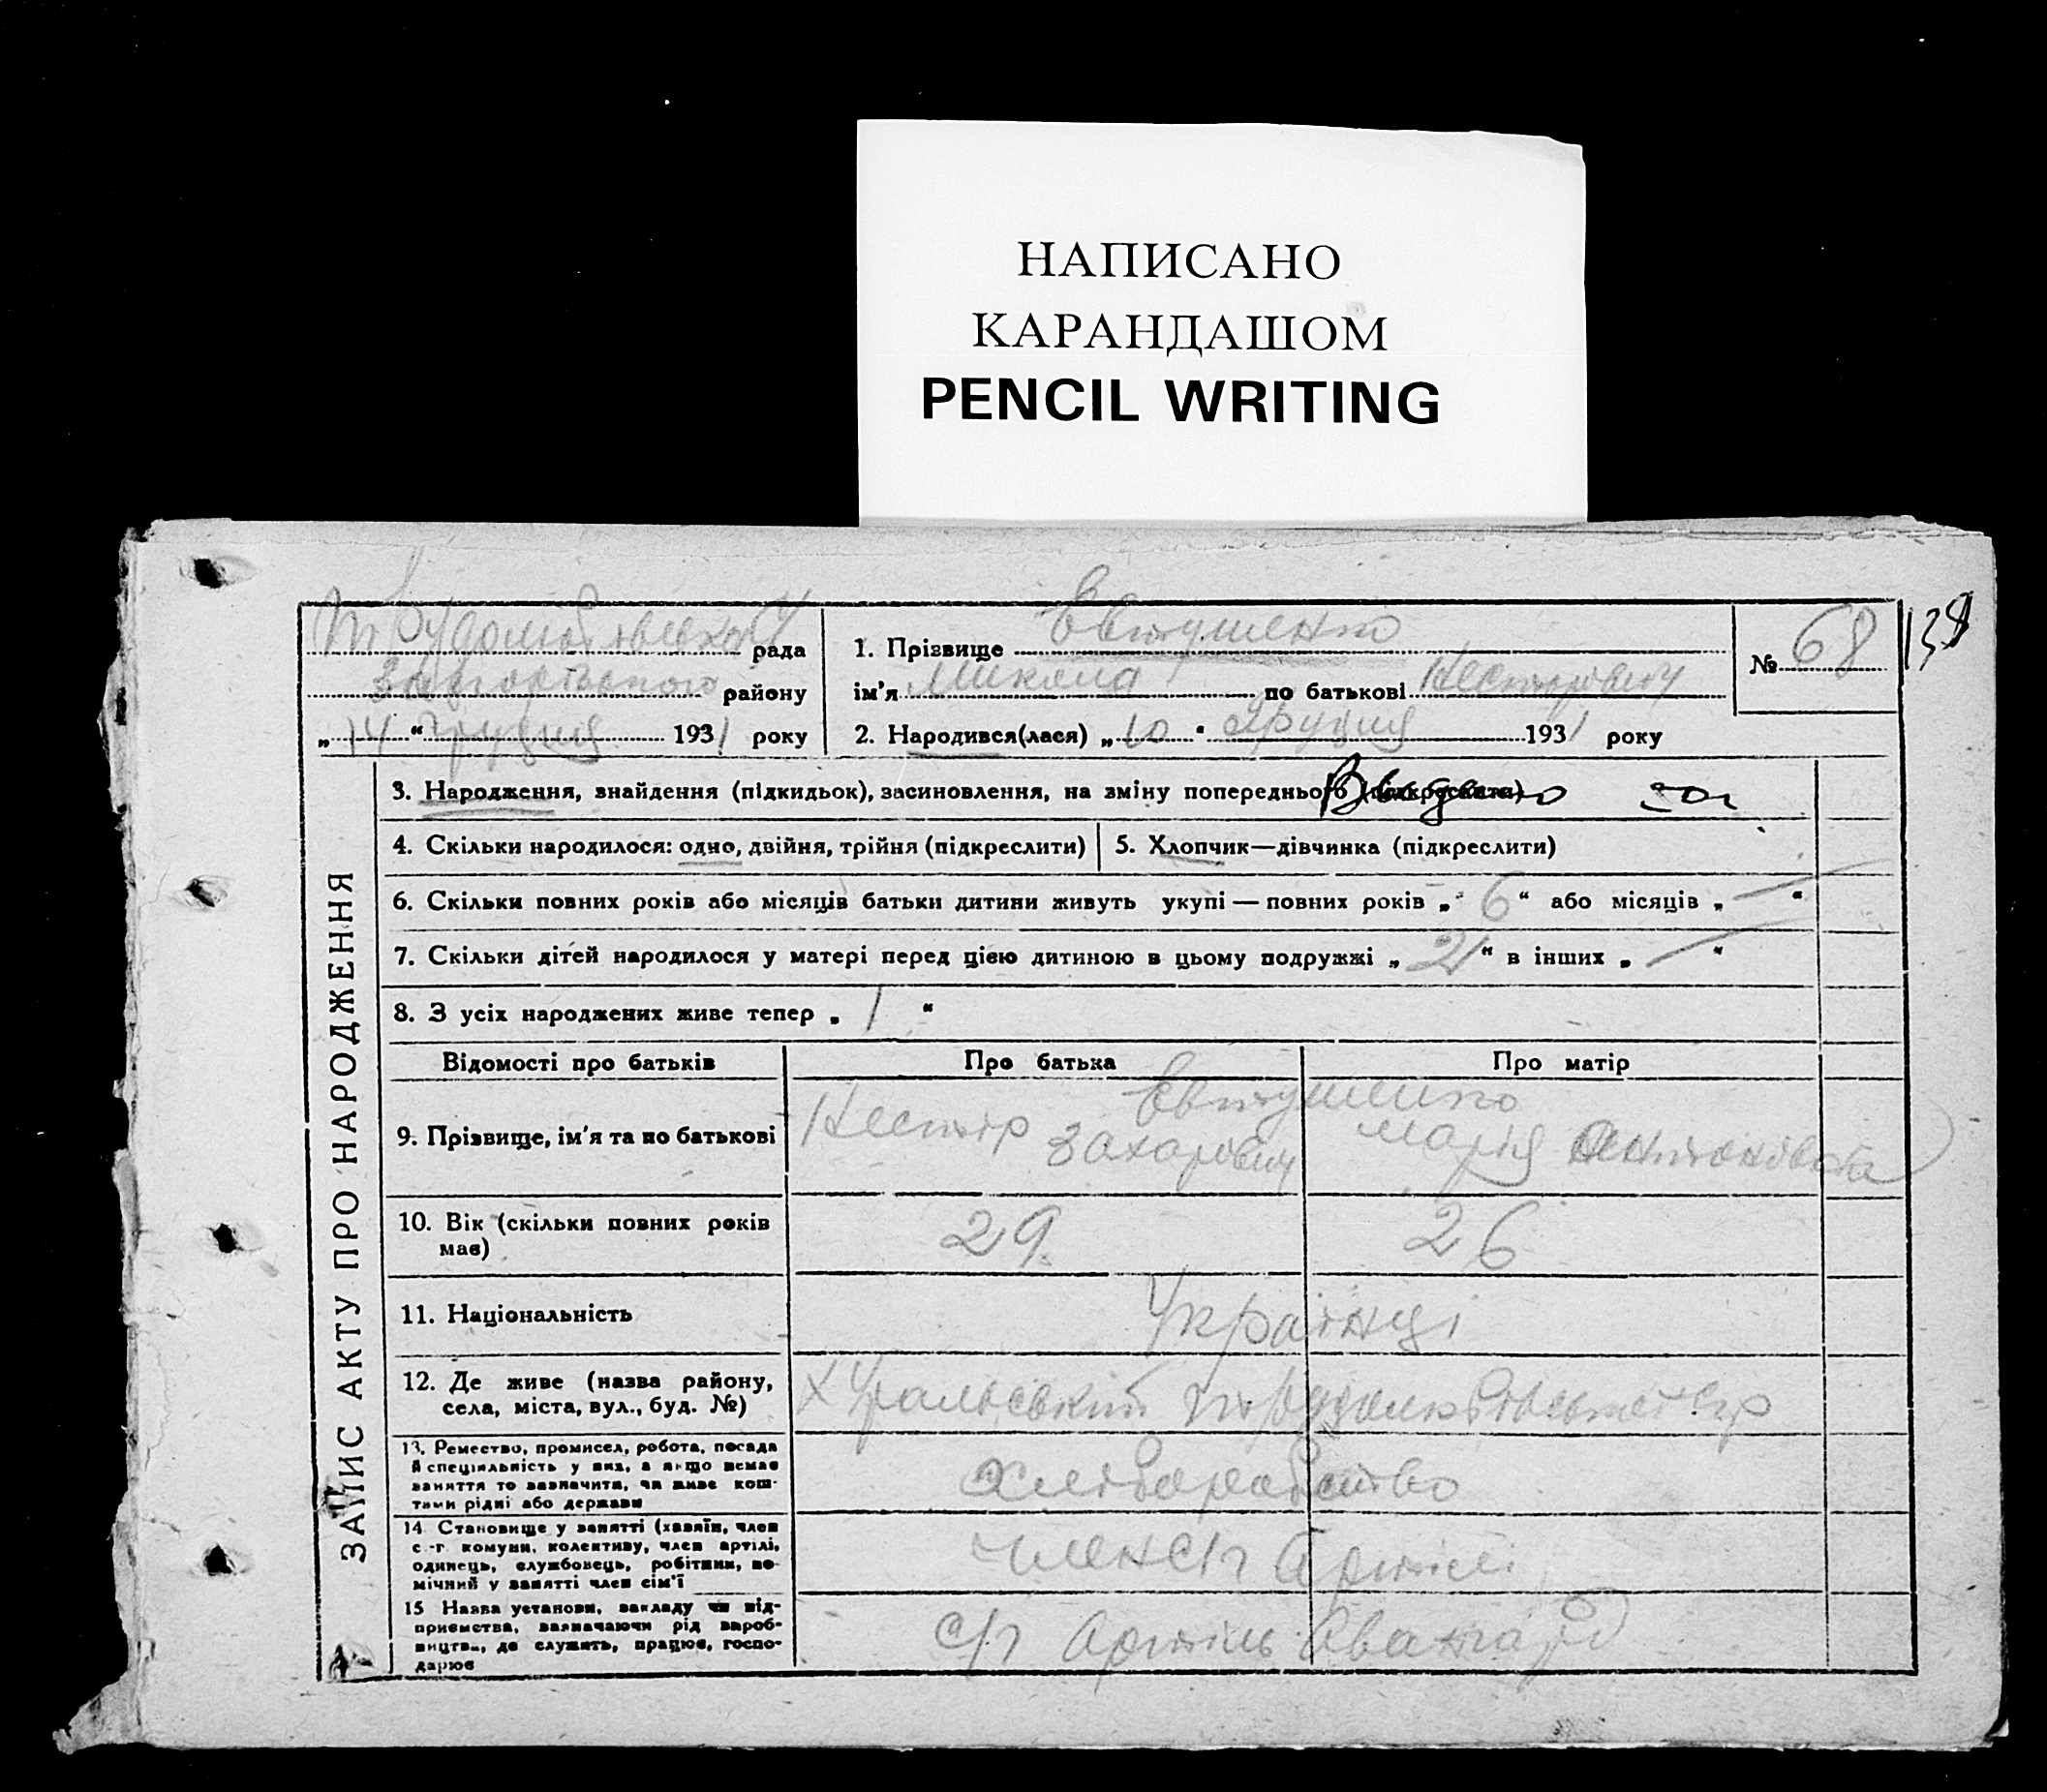 НАПИСАНО
КАРАНДАШОМ
PENCIL WRITING
рада
району
„ 14 “ грудня 1931 року
1. Прізвище Євтушенко
ім'я Микола по батькові Несторович
2. Народився(лася) „ 10 “ грудня 1931 року
№ 68
138
ЗАПИС АКТУ ПРО НАРОДЖЕННЯ
3. Народження, знайдення (підкидьок), засиновлення, на зміну попереднього (підкреслити)
4. Скільки народилося: одно, двійня, трійня (підкреслити)
5. Хлопчик—дівчинка (підкреслити)
6. Скільки повних років або місяців батьки дитини живуть укупі — повних років „ 6 “ або місяців „ — “
7. Скільки дітей народилося у матері перед цією дитиною в цьому подружжі „ 2 “ в інших „ — “
8. З усіх народжених живе тепер „ 1 “
Відомості про батьків
Про батька
Про матір
9. Прізвище, ім'я та по батькові
Євтушенко
Нестір Захарович
Марія Антонівна
10. Вік (скільки повних років
має)
29
26
11. Національність
Українці
12. Де живе (назва району,
села, міста, вул., буд. №)
Х Уральський
13. Ремество, промисел, робота, посада
й спеціяльність у них, а якщо немає
заняття то зазначити, чи живе кош-
тами рідні або держави
Хліборобство
14 Становище у занятті (хазяїн, член
с.-г. комуни, колективу, член артілі,
одинець, службовець, робітник, по-
мічний у занятті член сім'ї
член с/г Артілі
15 Назва установи, закладу чи під-
приємства, зазначаючи рід вироб-
ництва, де служить, працює, госпо-
дарює
с/г Артіль Авангард